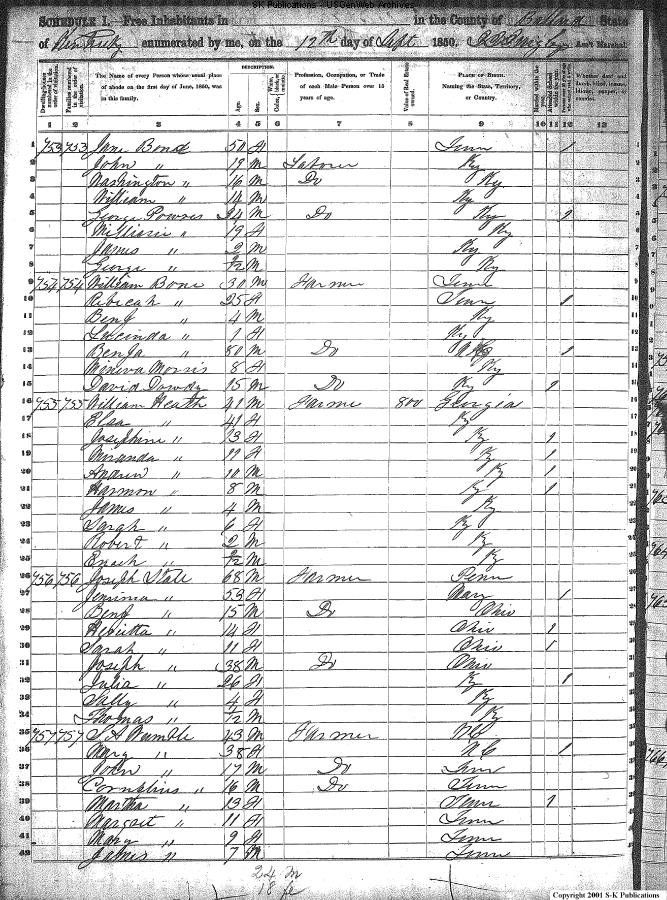 S-K Publications - USGenWeb Archives
SCHEDULE I.—Free Inhabitants in in the County of Ballard State
of Kentucky enumerated by me, on the 17th day of Sept 1850. Ass't Marshal
Dwelling-houses numbered in the order of visitation.
Families numbered in the order of visitation.
The Name of every Person whose usual place of abode on the first day of June, 1850, was in this family.
DESCRIPTION.
Age.
Sex.
Color, White, black, or mulatto.
Profession, Occupation, or Trade of each Male Person over 15 years of age.
Value of Real Estate owned.
PLACE OF BIRTH. Naming the State, Territory, or Country.
Married within the year.
Attended School within the year.
Whether deaf and dumb, blind, insane, idiotic, pauper, or convict.
1 2 3 4 5 6 7 8 9 10 11 12 13
1 753 753 Jane Bond 50 F Tenn /
2 John " 19 M Laborer Ky
3 Washington " 16 M Do Ky
4 William " 14 M Ky
5 George Powers 24 M Do Ky 1
6 " 19 F Ky
7 James " 2 M Ky
8 George " ½ M Ky
9 754 754 William Bone 30 M Farmer Tenn
10 Rebecah " 25 F Tenn 1
11 Benj " 4 M Ky
12 Lucinda " 1 F Ky
13 Benja " 50 M Do 1
14 Minerva Morris 8 F Ky
15 David Dowdy 15 M Do Ky 1
16 755 755 William Heath 41 M Farmer 800 Georgia
17 Elsa " 41 F Ky
18 Josephine " 13 F Ky 1
19 Miranda " 11 F Ky 1
20 Andrew " 10 M Ky 1
21 Harmon " 8 M Ky 1
22 James " 4 M Ky
23 Sarah " 6 F Ky
24 Robert " 2 M Ky
25 Enoch " ½ M Ky
26 756 756 Joseph State 68 M Farmer Penn
27 " 53 F Mary 1
28 Benj " 15 M Do Ohio
29 Henietta " 14 F Ohio 1
30 Sarah " 11 F Ohio 1
31 Joseph " 38 M Do Ohio
32 Julia " 26 F Ky 1
33 Sally " 4 F Ky
34 Thomas " ½ M Ky
35 757 757 Wumble 43 M Farmer N C
36 Mary " 38 F N C 1
37 John " 17 M Do Tenn
38 Cornelius " 16 M Do Tenn
39 Martha " 13 F Tenn 1
40 Margaret " 11 F Tenn
41 Mary " 9 F Tenn
42 James " 7 M Tenn
24 M
18 fe
Copyright 2001 S-K Publications